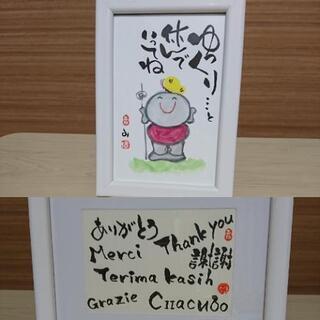 ゆっくり…と
休んで
いってね
ありがとう Thank you
Merci 謝謝
Terima kasih
Grazie Спасибо